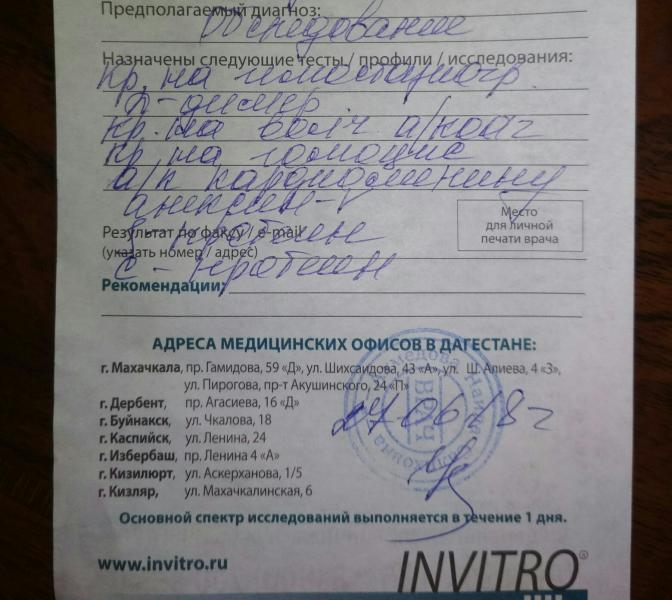 Предполагаемый диагноз:
Обследование
Назначены следующие тесты / профили / исследования:
кр. на гемостазиогр.
Д-димер
кр. на волч а/коаг
кр. на гомоцис
а/к кардиолипину
анексин-V
Место
для личной
печати врача
Результат по факсу / e-mail
S - протеин
(указать номер / адрес)
С - протеин
Рекомендации:
АДРЕСА МЕДИЦИНСКИХ ОФИСОВ В ДАГЕСТАНЕ:
г. Махачкала, пр. Гамидова, 59 «Д», ул. Шихсаидова, 43 «А», ул. Ш. Алиева, 4 «З»,
ул. Пирогова, пр-т Акушинского, 24 «П»
г. Дербент, пр. Агасиева, 16 «Д»
г. Буйнакск, ул. Чкалова, 18
г. Каспийск, ул. Ленина, 24
г. Избербаш, пр. Ленина 4 «А»
г. Кизилюрт, ул. Аскерханова, 1/5
г. Кизляр, ул. Махачкалинская, 6
ВРАЧ
27 06 18 г
Основной спектр исследований выполняется в течение 1 дня.
www.invitro.ru
INVITRO®